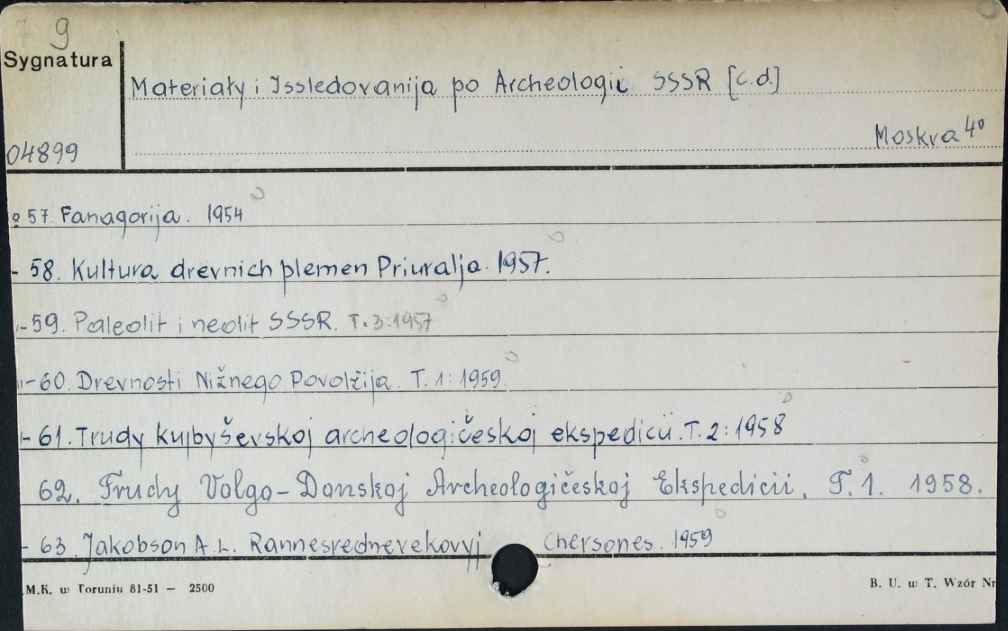 9
Sygnatura
Materiały i Issledovanija po Archeologii SSSR [c.d.]
Moskva 4º
04899
57. Fanagorija. 1954
- 58. Kultura drevnich plemen Priuralja. 1957.
- 59. Paleolit i neolit SSSR. T.3:1957
- 60. Drevnosti Nižnego Povolžija. T. 1: 1959.
- 61. Trudy kujbyševskoj archeologičeskoj ekspedicii. T. 2: 1958
62. Trudy Volgo-Donskoj Archeologičeskoj Ekspedicii. T. 1. 1958.
- 63. Jakobson A. L. Rannesrednevekovyj Chersones. 1959
M.K. w Toruniu 81-51 — 2500
B. U. w T. Wzór Nr